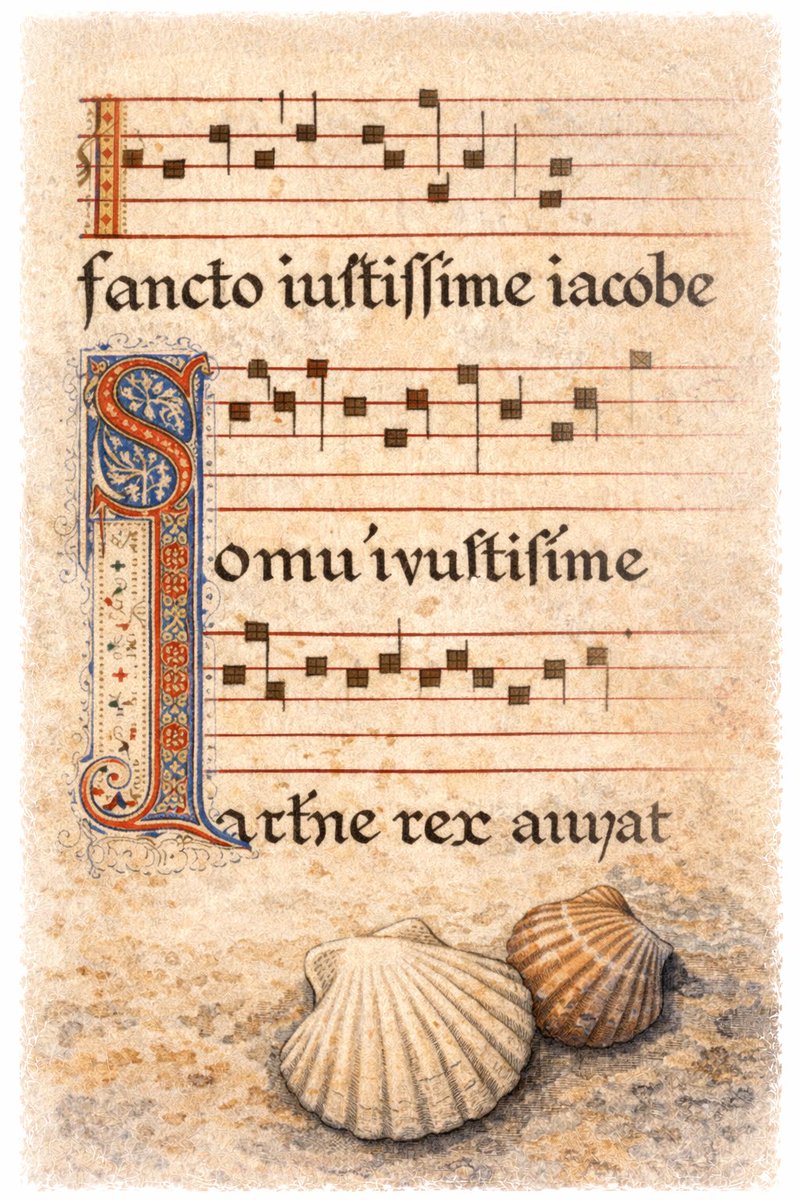 ſancto iuſtiſſime iacobe
Somu'ivuſtiſime
artħne rex auıyat